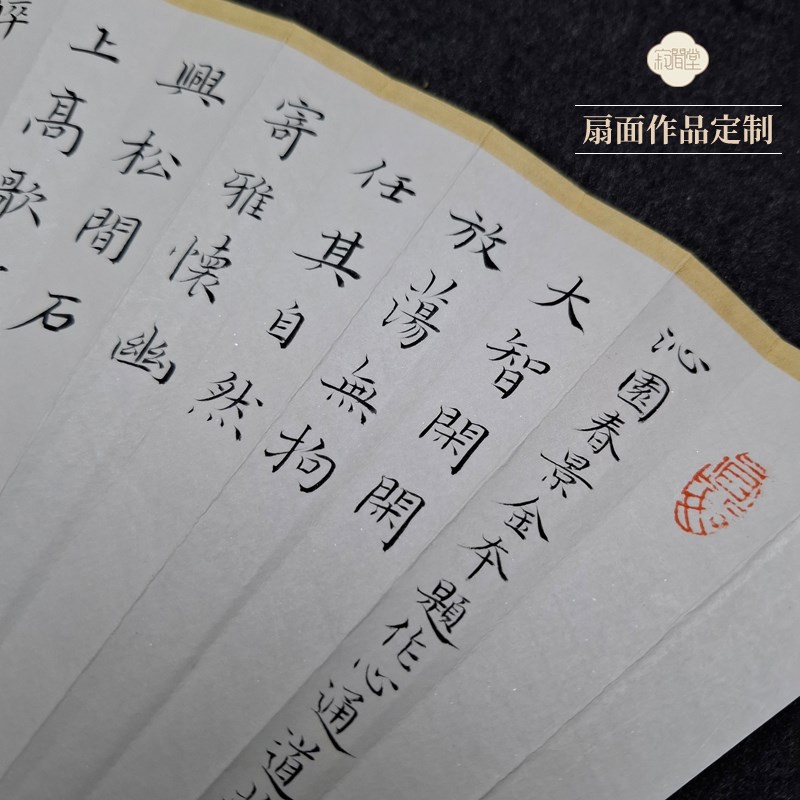 扇面作品定制
沁園春景金本題作心通道
大智閑閑
放蕩無拘
任其自然
寄雅懷幽
興松間石
上高歌